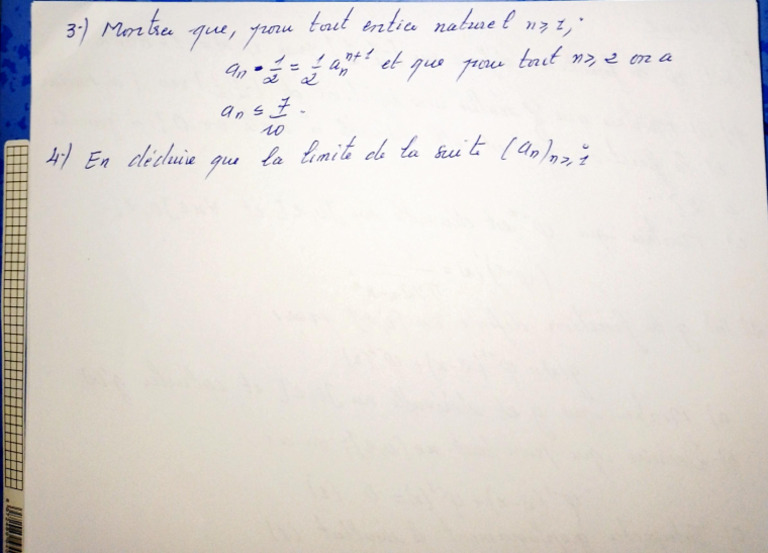 3-) Montrer que, pour tout entier naturel n ≥ 1,
aₙ - 1/2 = 1/2 aₙⁿ⁺¹ et que pour tout n ≥ 2 on a
aₙ ≤ 7/10.
4-) En déduire que la limite de la suite (aₙ)ₙ≥1